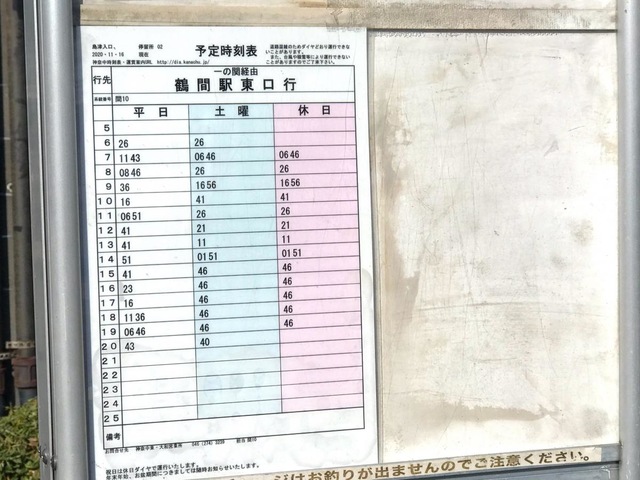 島津入口、 停留所 02
2020・11・16 現在
予定時刻表
道路混雑のためダイヤどおり運行できないことがあります。
また、台風や積雪等により運行できないことがありますのでご了承下さい。
神奈中時刻表・運賃案内URL http://dia.kanachu.jp
行先 一の関経由
鶴間駅東口行
系統番号 間10
平日 土曜 休日
5
6 26 26
7 11 43 06 46 06 46
8 08 46 26 26
9 36 16 56 16 56
10 16 41 41
11 06 51 26 26
12 41 21 21
13 41 11 11
14 51 01 51 01 51
15 41 46 46
16 23 46 46
17 16 46 46
18 11 36 46 46
19 06 46 46 46
20 43 40
21
22
23
24
25
備考
お問合せ先 神奈中東・大和営業所 046 (274) 3239 担当 間10
祝日は休日ダイヤで運行いたします。
年末年始、お盆期間につきましては随時お知らせいたします。
ジはお釣りが出ませんのでご注意ください。